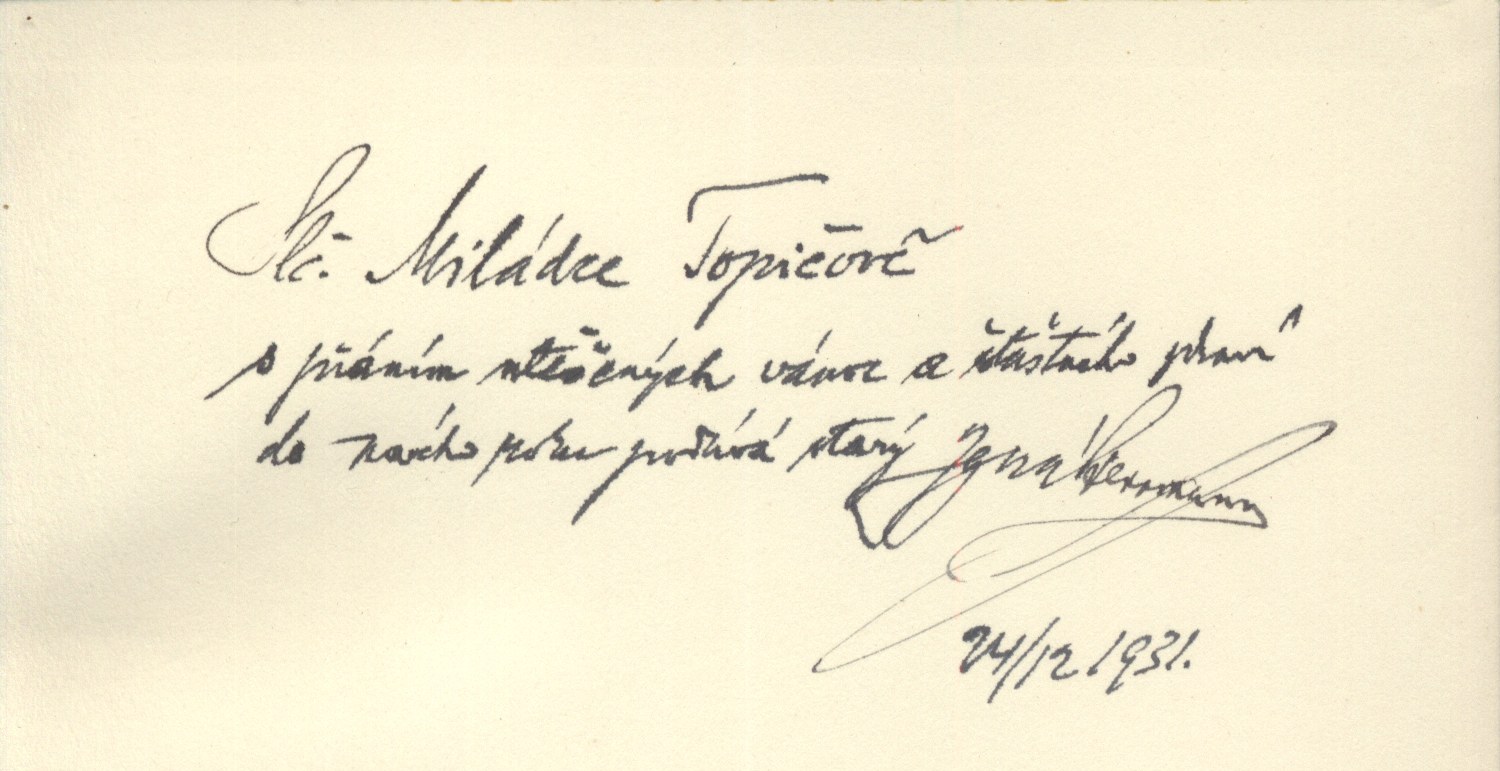 Slč. Miládce Topičově
s přáním utěšených vánoc a šťastného plaví
do nového roku podává starý Ignát Herrmann
24/12 1931.